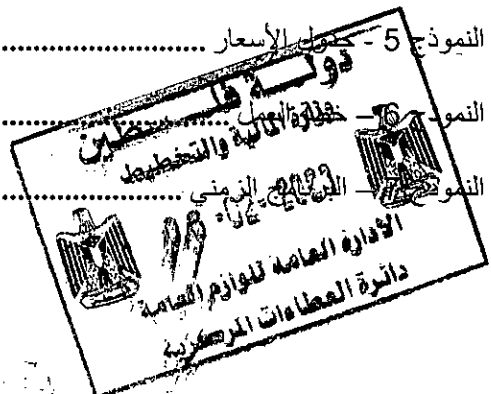 النموذج 5 - جدول الأسعار ........................
النموذج 6 – خطة العمل ........................
النموذج 7 – البرنامج الزمني ........................
دولة فلسطين
وزارة المالية والتخطيط
الادارة العامة للوازم العامة
دائرة العطاءات المركزية